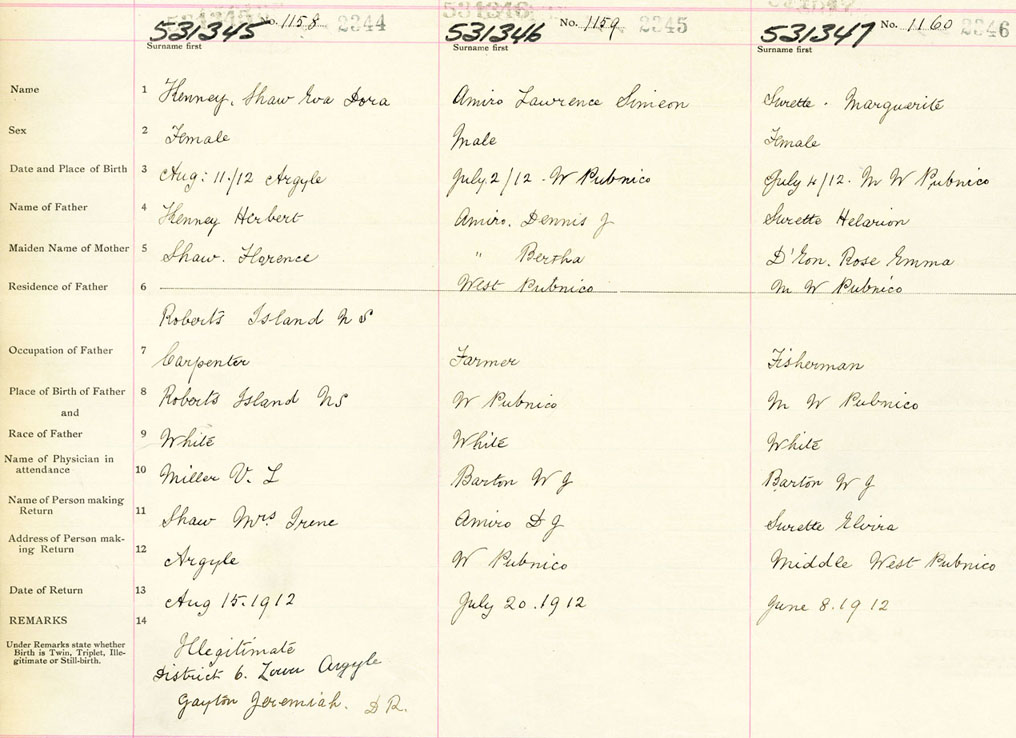 531345 No. 1158 2344
Surname first
531346 No. 1159 2345
Surname first
531347 No. 1160 2346
Surname first
Name 1 Kenney, Shaw Eva Dora Amiro Lawrence Simeon Surette. Marguerite
Sex 2 Female Male Female
Date and Place of Birth 3 Aug: 11/12 Argyle July 2/12. W Pubnico July 4/12. M W Pubnico
Name of Father 4 Kenney Herbert Amiro, Dennis J Surette Helarion
Maiden Name of Mother 5 Shaw. Florence " Bertha D'Eon. Rose Emma
Residence of Father 6 West Pubnico M W Pubnico
Roberts Island N S
Occupation of Father 7 Carpenter Farmer Fisherman
Place of Birth of Father 8 Roberts Island NS W Pubnico M W Pubnico
and
Race of Father 9 White White White
Name of Physician in
attendance 10 Miller V. L Barton W J Barton W J
Name of Person making
Return 11 Shaw Mrs Irene Amiro D J Surette Elvira
Address of Person mak-
ing Return 12 Argyle W Pubnico Middle West Pubnico
Date of Return 13 Aug 15.1912 July 20.1912 June 8.1912
REMARKS 14
Under Remarks state whether
Birth is Twin, Triplet, Ille-
gitimate or Still-birth.
Illegitimate
District 6. Lower Argyle
Gayton Jeremiah. D R.